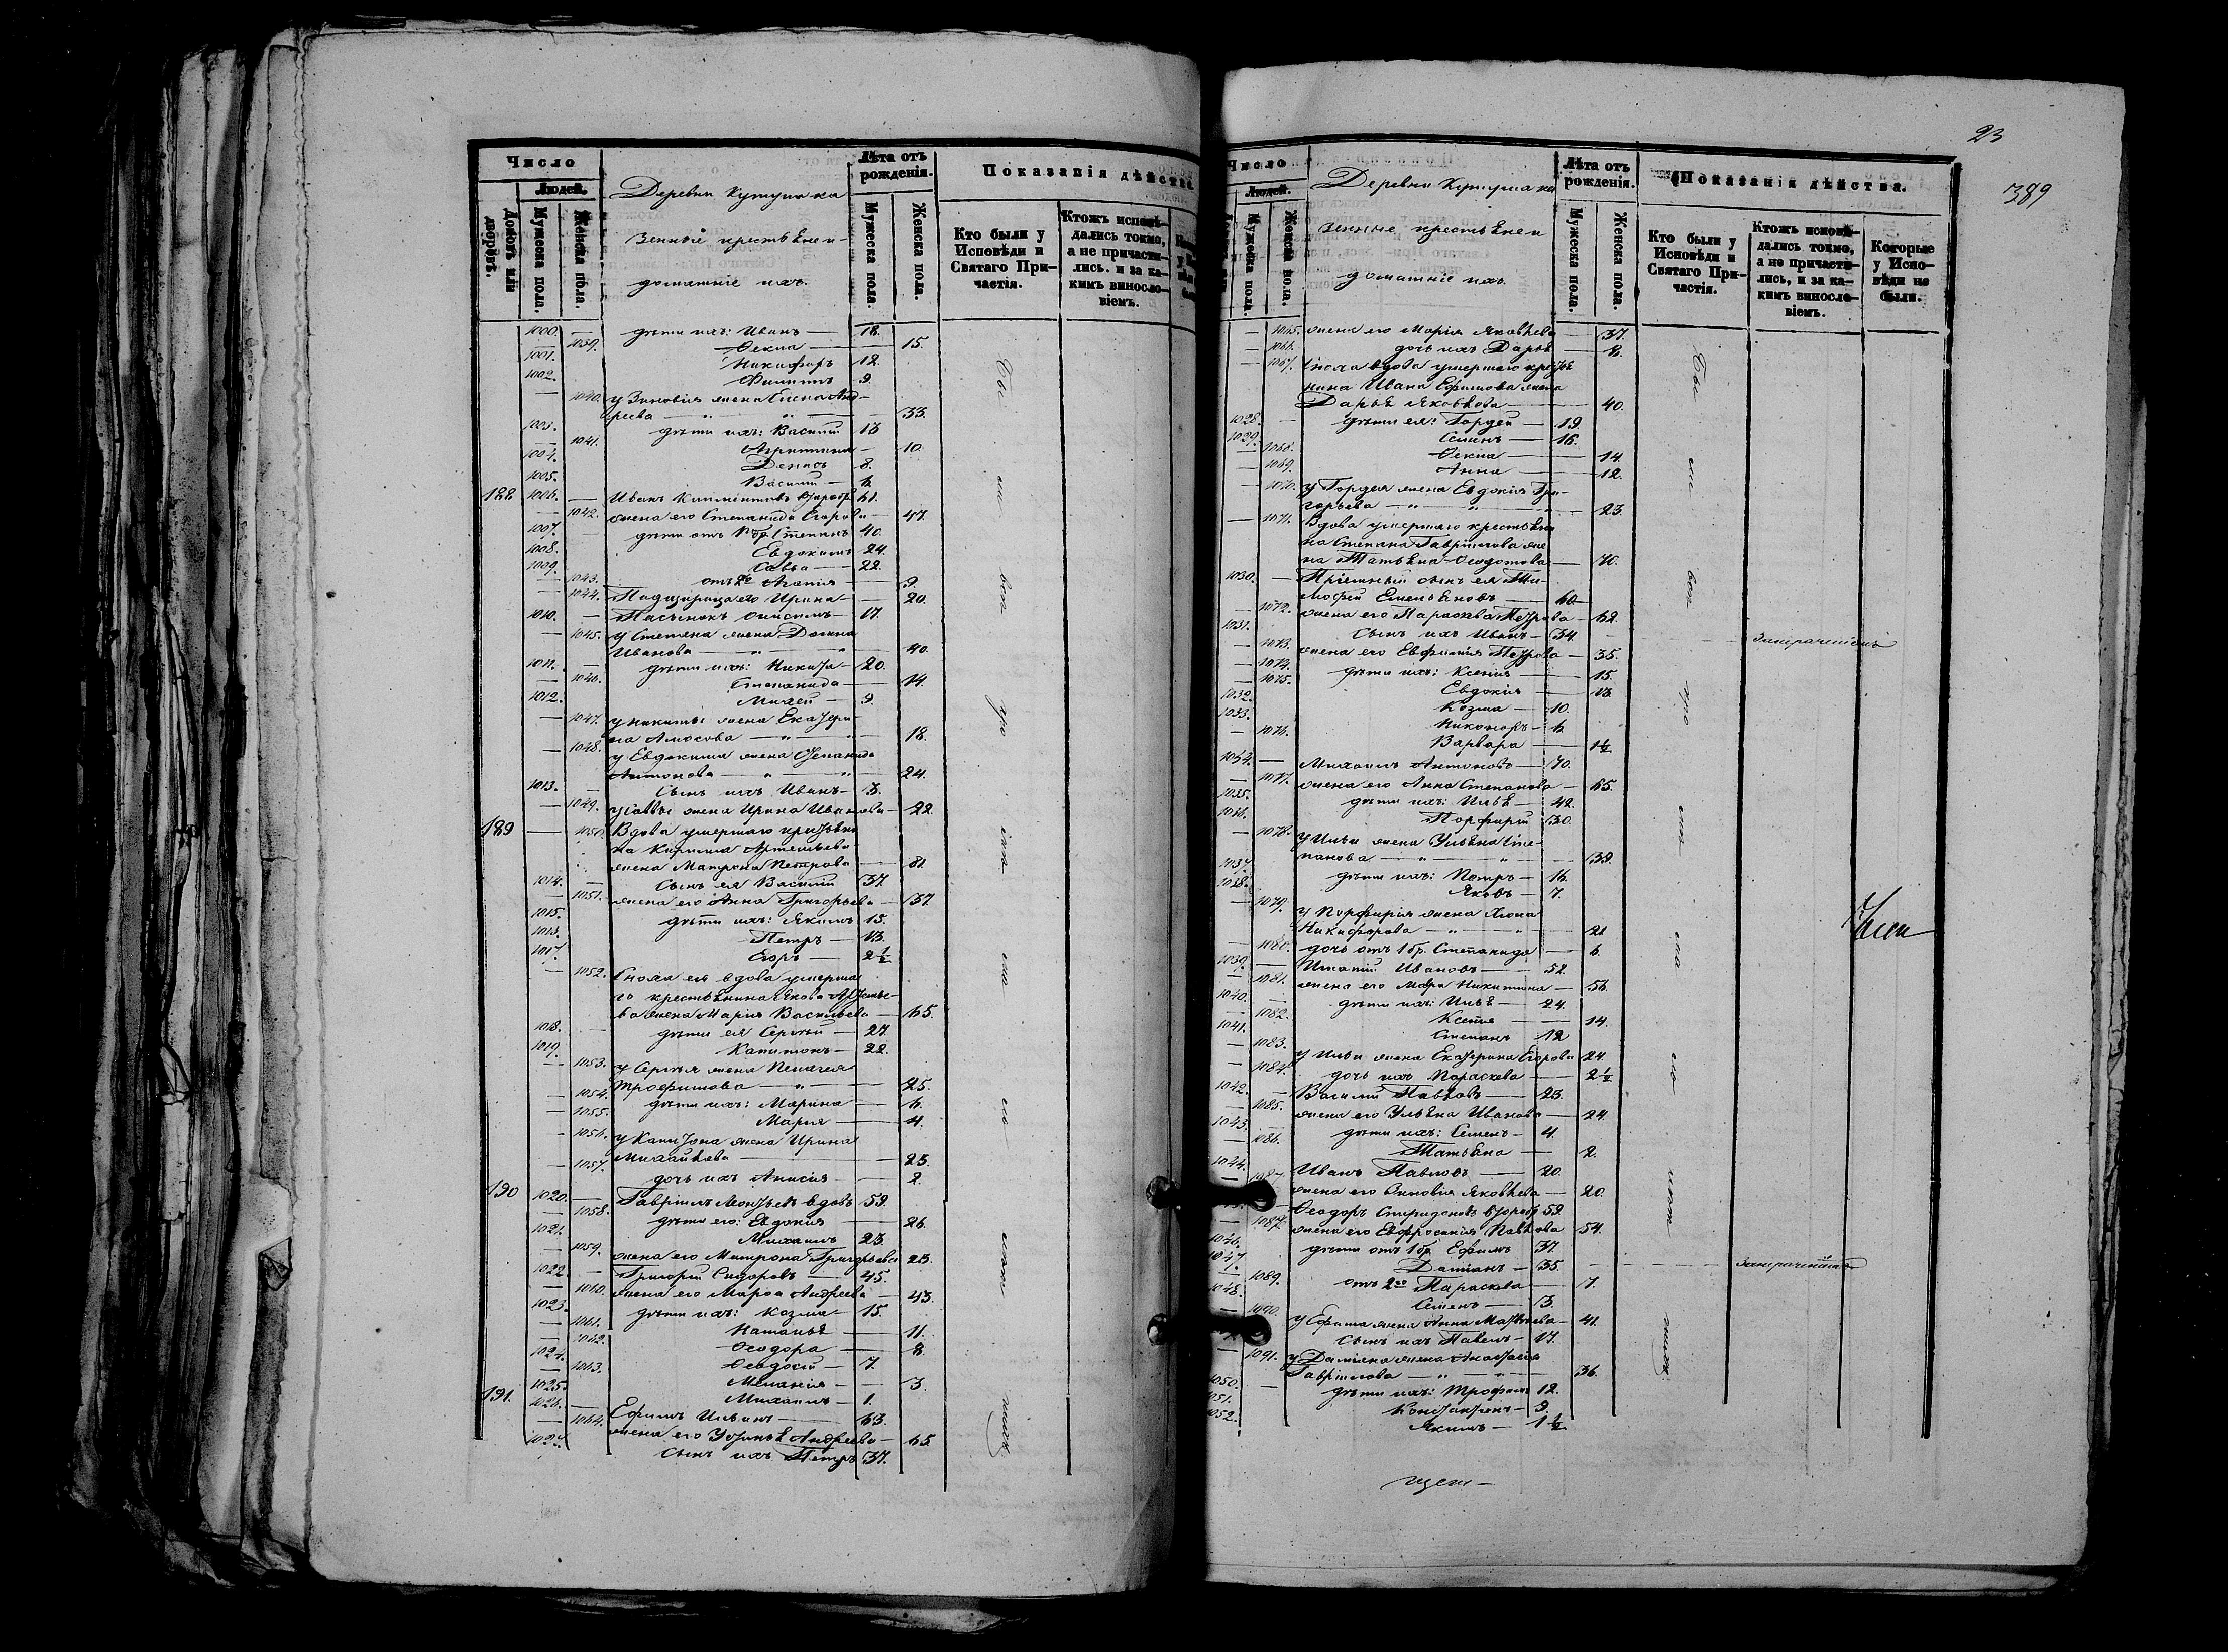 Число
Людей.
Домовъ или дворовъ.
Мужеска пола.
Женска пола.
Деревни Кутушка
зенныіе крестьяне и
домашніе ихъ.
Лѣта отъ рожденія.
Мужеска пола.
Женска пола.
Показанія дѣйства
Кто были у Исповѣди и Святаго Причастія.
Ктожъ исповѣдались токмо, а не причастились. и за какимъ винословіемъ.
1000. — дѣти ихъ: Иванъ — 18.
— 1039. Ѳекла — 15.
1001. Никифоръ 12.
1002. Филиппъ 9.
— 1040. у Зиновія жена Елена Анд-
реева — 33.
1003. дѣти ихъ: Василій 13
— 1041. Агриппина — 10.
1004. Денисъ 8.
1005. Василій — 6.
188 1006. — Иванъ Климентовъ 61.
— 1042. жена его Степанида Егорова — 47.
1007. — дѣти отъ Степанъ 40.
1008. Евдокимъ 24.
1009. Савва — 22.
— 1043. отъ 2го Агапія — 9.
— 1044. Падщерица его Ирина — 20.
1010. — Пасынокъ Онисимъ — 17.
— 1045. у Степана жена Домна
Иванова — 40.
1011. — дѣти ихъ: Никита — 20.
— 1046. Степанида — 14.
1012. Михей — 9.
— 1047. у Никиты жена Екатери-
на Амосова — 18.
— 1048. у Евдокима жена Степанида
Антонова — 24.
1013. — Сынъ ихъ Иванъ — 3.
— 1049. у Саввы жена Ирина Иванова — 22.
189 — 1050. Вдова умершаго крестьяни
на Кирилла Артемьева
жена Матрона Петрова — 81.
1014. — Сынъ ея Василій 37.
— 1051. жена его Анна Григорьева — 37.
1015. дѣти ихъ: Якимъ 15.
1016. Петръ — 13.
1017. Егоръ — 2½
— 1052. Сноха ея вдова умерша
го крестьянина Якова
жена Марія Васильева — 65.
1018. — дѣти ея Сергѣй — 27.
1019. Капитонъ — 22.
— 1053. у Сергѣя жена Пелагея
Трофимова — 25.
— 1054. дѣти ихъ: Марина — 6.
— 1055. Марія — 4.
— 1056. у Капитона жена Ирина
Михайлова — 25.
— 1057. дочь ихъ Анисія — 2.
190 1020. — Гавріилъ вдовъ 59.
— 1058. дѣти его: Евдокія — 26.
1021. Михаилъ 23.
— 1059. жена его Матрона Григорьева 23.
1022. — Григорій Сидоровъ — 45.
— 1060. жена его Марѳа Андреева — 43.
1023. — дѣти ихъ: Козма — 15.
— 1061. Наталья — 11.
— 1062. Ѳеодора — 8.
1024. Ѳеодосій — 7.
— 1063. Меланія — 3.
1025. Михаилъ — 1.
191. 1026. — Ефимъ Ильинъ — 63.
— 1064. жена его Устинья Андреева — 65.
1027. Сынъ ихъ Петръ 37.
23
389
Число
Людей.
Мужеска пола.
Женска пола.
Деревни Кутушка
зенныіе крестьяне и
домашніе ихъ.
Лѣта отъ рожденія.
Мужеска пола.
Женска пола.
Показанія дѣйства.
Кто были у Исповѣди и Святаго Причастія.
Ктожъ исповѣдались токмо, а не причастились, и за какимъ винословіемъ.
Которые у Исповѣди не были.
— 1065. жена его Марія Яковлева — 37.
— 1066. дочь ихъ Дарья — 8.
— 1067. Сноха вдова умершаго кресть
нина Ивана Ефимова жена
Дарья Яковлева — 40.
1028. — дѣти ея: Гордей — 19.
1029. Семенъ — 16.
— 1068. Ѳекла — 14.
— 1069. Анна — 12.
— 1070. у Гордея жена Евдокія Гри-
горьева — 23.
— 1071. Вдова умершаго крестьяни
на Степана Гавріилова же
на Татьяна Ѳеодотова — 70.
1030. — Пріемный сынъ ея Ти-
мофей Емельяновъ — 60.
— 1072. жена его Параскева Петрова — 62.
1031. Сынъ ихъ Иванъ — 34.
— 1073. жена его Евфимія Петрова — 35.
— 1074. дѣти ихъ: Ксенія — 15.
— 1075. Евдокія — 13.
1032. Козма — 10.
1033. Никоноръ — 6.
— 1076. Варвара — 1½
1034. — Михаилъ Антоновъ — 70.
— 1077. жена его Анна Степанова — 65.
1035. дѣти ихъ: Илья — 42.
1036. Порфирій 30.
— 1078. у Ильи жена Ульяна Сте-
панова — 39.
1037. дѣти ихъ: Петръ — 16.
1038. Яковъ — 7.
— 1079. у Порфирія жена
Никифорова — 21
— 1080. дочь отъ 1 бр. Степанида — 6.
1039. — Игнатій Ивановъ — 52.
— 1081. жена его Мавра Никитина — 56.
1040. дѣти ихъ: Илья — 24.
— 1082. Ксенія — 14.
1041. Степанъ 12
— 1083. у Ильи жена Екатерина Егорова 24.
— 1084. дочь ихъ Параскева — 2½
1042. — Василій Павловъ — 23.
— 1085. жена его Ульяна Иванова — 24.
1043. дѣти ихъ: Семенъ — 4.
— 1086. Татьяна — 2.
1044. Иванъ Павловъ — 20.
1087 жена его Зиновія Яковлева — 20.
Ѳеодоръ Спиридоновъ 59.
жена его Евфросинія Павлова 54.
1046. дѣти отъ 1 бр. Ефимъ 37.
1047. Даміанъ — 35.
— 1089. отъ 2го Параскева — 7.
1048. Семенъ — 3.
1090. у Ефима жена Анна Матвѣева — 41.
Сынъ ихъ Павелъ — 17.
1091. у Даміана жена Анастасія
Гавріилова — 36.
1050. — дѣти ихъ: Трофимъ 12.
1051. Константинъ — 9.
1052. Якимъ — 1½